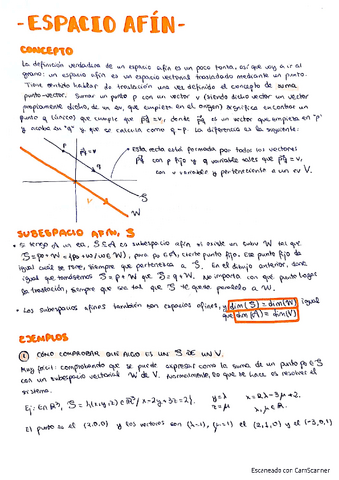 -ESPACIO AFÍN-
CONCEPTO
La definición verdadera de un espacio afín es un poco tonta, así que voy a ir al
grano: un espacio afín es un espacio vectorial trasladado mediante un punto.
Tiene sentido hablar de traslación una vez definido el concepto de suma
punto-vector. Sumar un punto p con un vector v (siendo dicho vector un vector
propiamente dicho, de un ev, que empieza en el origen) significa encontrar un
punto q (único) que cumple que pq = v, donde pq es un vector que empieza en "p"
y acaba en "q" y que se calcula como q-p. La diferencia es la siguiente:
p
pq = v
q
v
S
W
esta recta está formada por todos los vectores
pq con p fijo y q variable tales que pq = v,
con v variable y perteneciente a un ev V.
SUBESPACIO AFÍN, S
• Si tengo A un ea, S⊆A es subespacio afín si existe un subev W tal que
S = p0 + W = {p0 + w / w ∈ W}, para p0 ∈ A, cierto punto fijo. Ese punto fijo da
igual cuál se tome, siempre que pertenezca a S. En el dibujo anterior, daría
igual que tomásemos S = p + W que S = q + W. No importa con qué punto hagas
la traslación, siempre que sea tal que S te quede paralelo a W.
• Los subespacios afines también son espacios afines, y dim(S) = dim(W) igual
que dim(A) = dim(V)
EJEMPLOS
① CÓMO COMPROBAR QUE ALGO ES UN S DE UN V.
Muy fácil: comprobando que se puede expresar como la suma de un punto p0 ∈ S
con un subespacio vectorial W de V. Normalmente, lo que se hace es resolver el
sistema.
Ej: En R³, S = {(x,y,z) ∈ R³ / x - 2y + 3z = 2}. y = λ x = 2λ - 3μ + 2,
z = μ λ, μ ∈ R.
El punto es el (2,0,0) y los vectores son (λ=1), (μ=1) el (2,1,0) y el (-3,0,1)
Escaneado con CamScanner